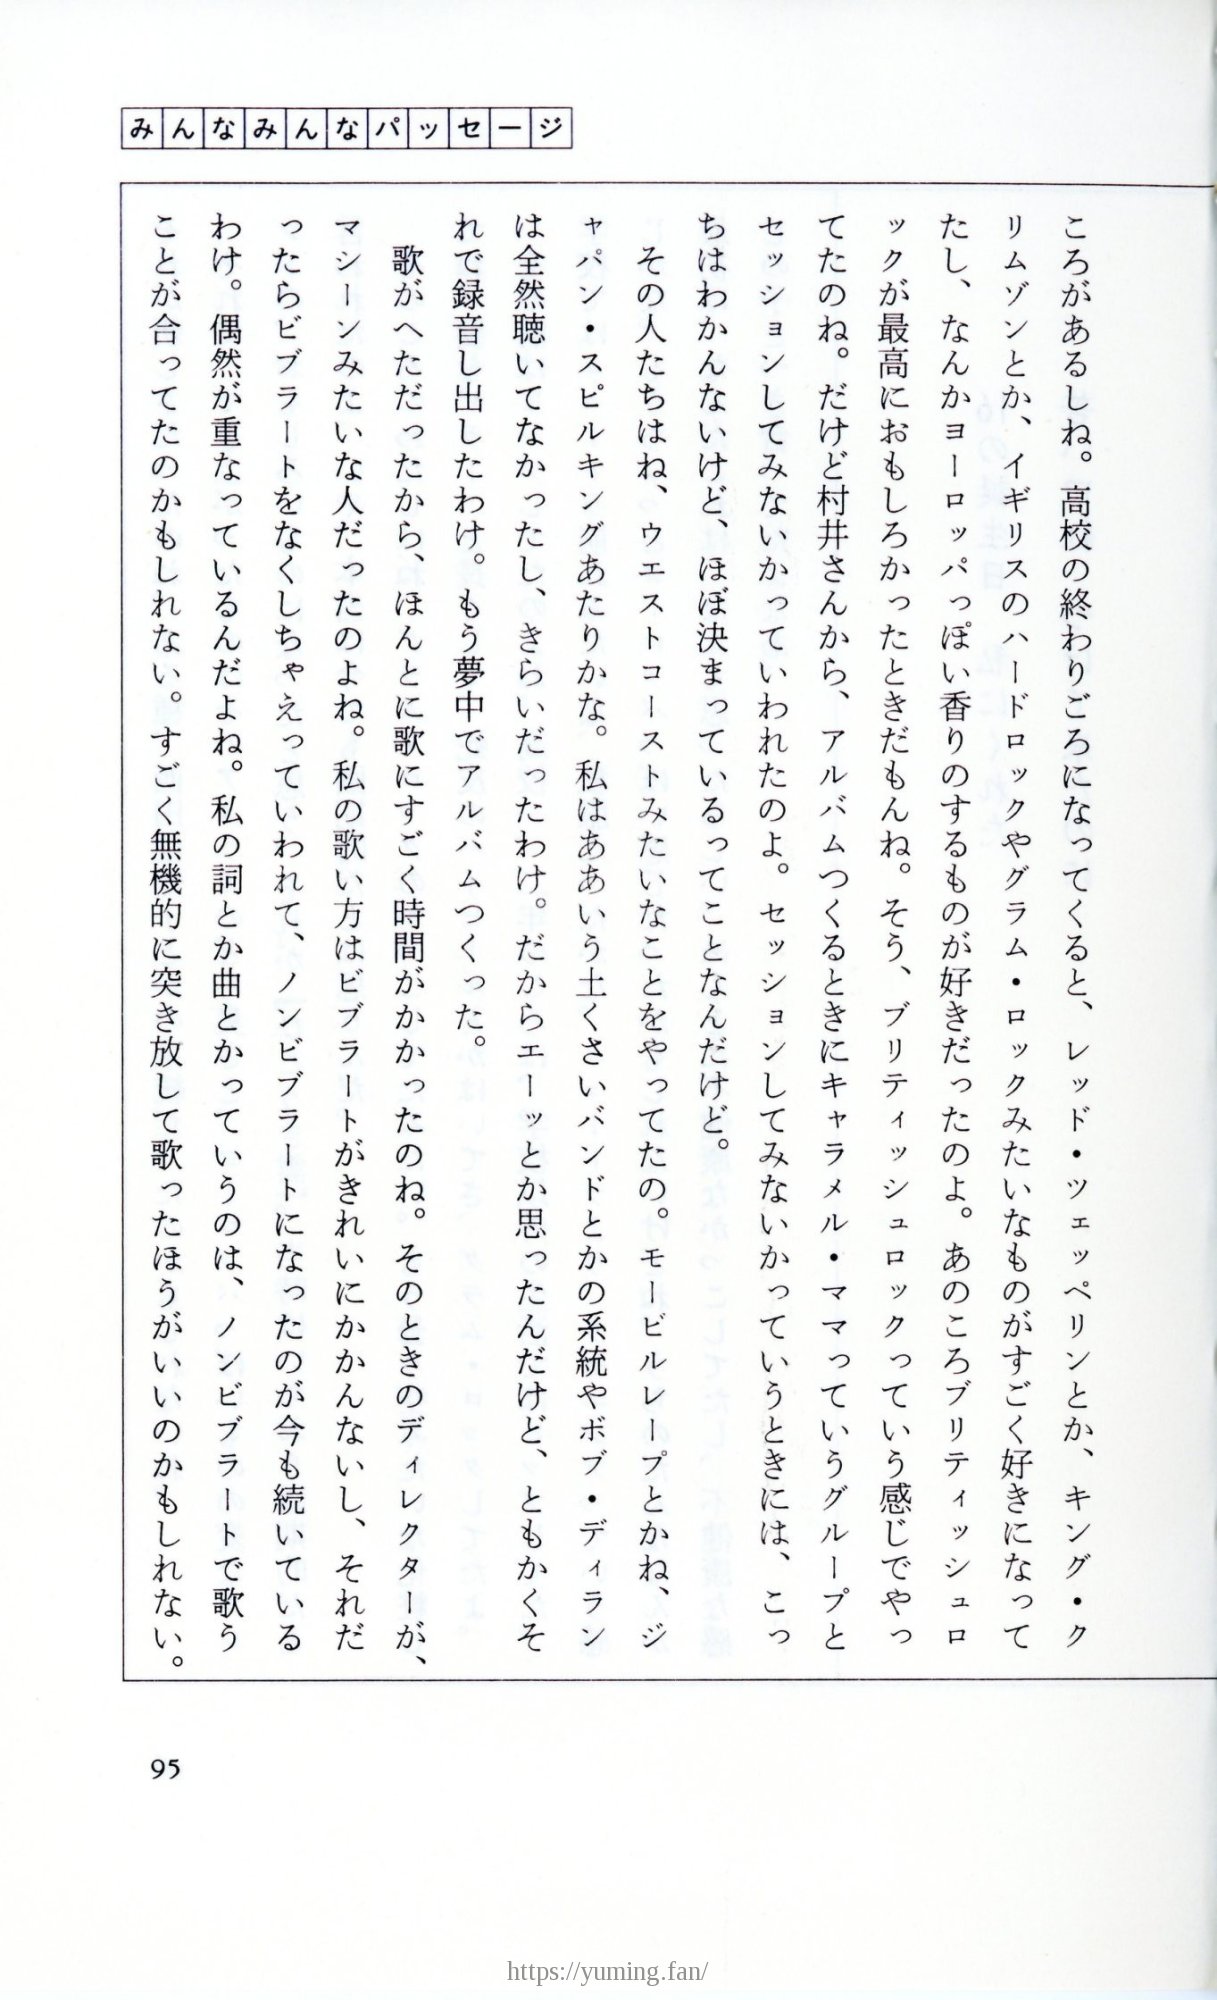 みんなみんなパッセージ
ころがあるしね。高校の終わりごろになってくると、レッド・ツェッペリンとか、キング・ク
リムゾンとか、イギリスのハードロックやグラム・ロックみたいなものがすごく好きになって
たし、なんかヨーロッパっぽい香りのするものが好きだったのよ。あのころブリティッシュロ
ックが最高におもしろかったときだもんね。そう、ブリティッシュロックっていう感じでやっ
てたのね。だけど村井さんから、アルバムつくるときにキャラメル・ママっていうグループと
セッションしてみないかっていわれたのよ。セッションしてみないかっていうときには、こっ
ちはわかんないけど、ほぼ決まっているってことなんだけど。
その人たちはね、ウエストコーストみたいなことをやってたの。モービルレープとかね、ジ
ャパン・スピルキングあたりかな。私はああいう土くさいバンドとかの系統やボブ・ディラン
は全然聴いてなかったし、きらいだったわけ。だからエーッとか思ったんだけど、ともかくそ
れで録音し出したわけ。もう夢中でアルバムつくった。
歌がへただったから、ほんとに歌にすごく時間がかかったのね。そのときのディレクターが、
マシーンみたいな人だったのよね。私の歌い方はビブラートがきれいにかかんないし、それだ
ったらビブラートをなくしちゃえっていわれて、ノンビブラートになったのが今も続いている
わけ。偶然が重なっているんだよね。私の詞とか曲とかっていうのは、ノンビブラートで歌う
ことが合ってたのかもしれない。すごく無機的に突き放して歌ったほうがいいのかもしれない。
95
https://yuming.fan/